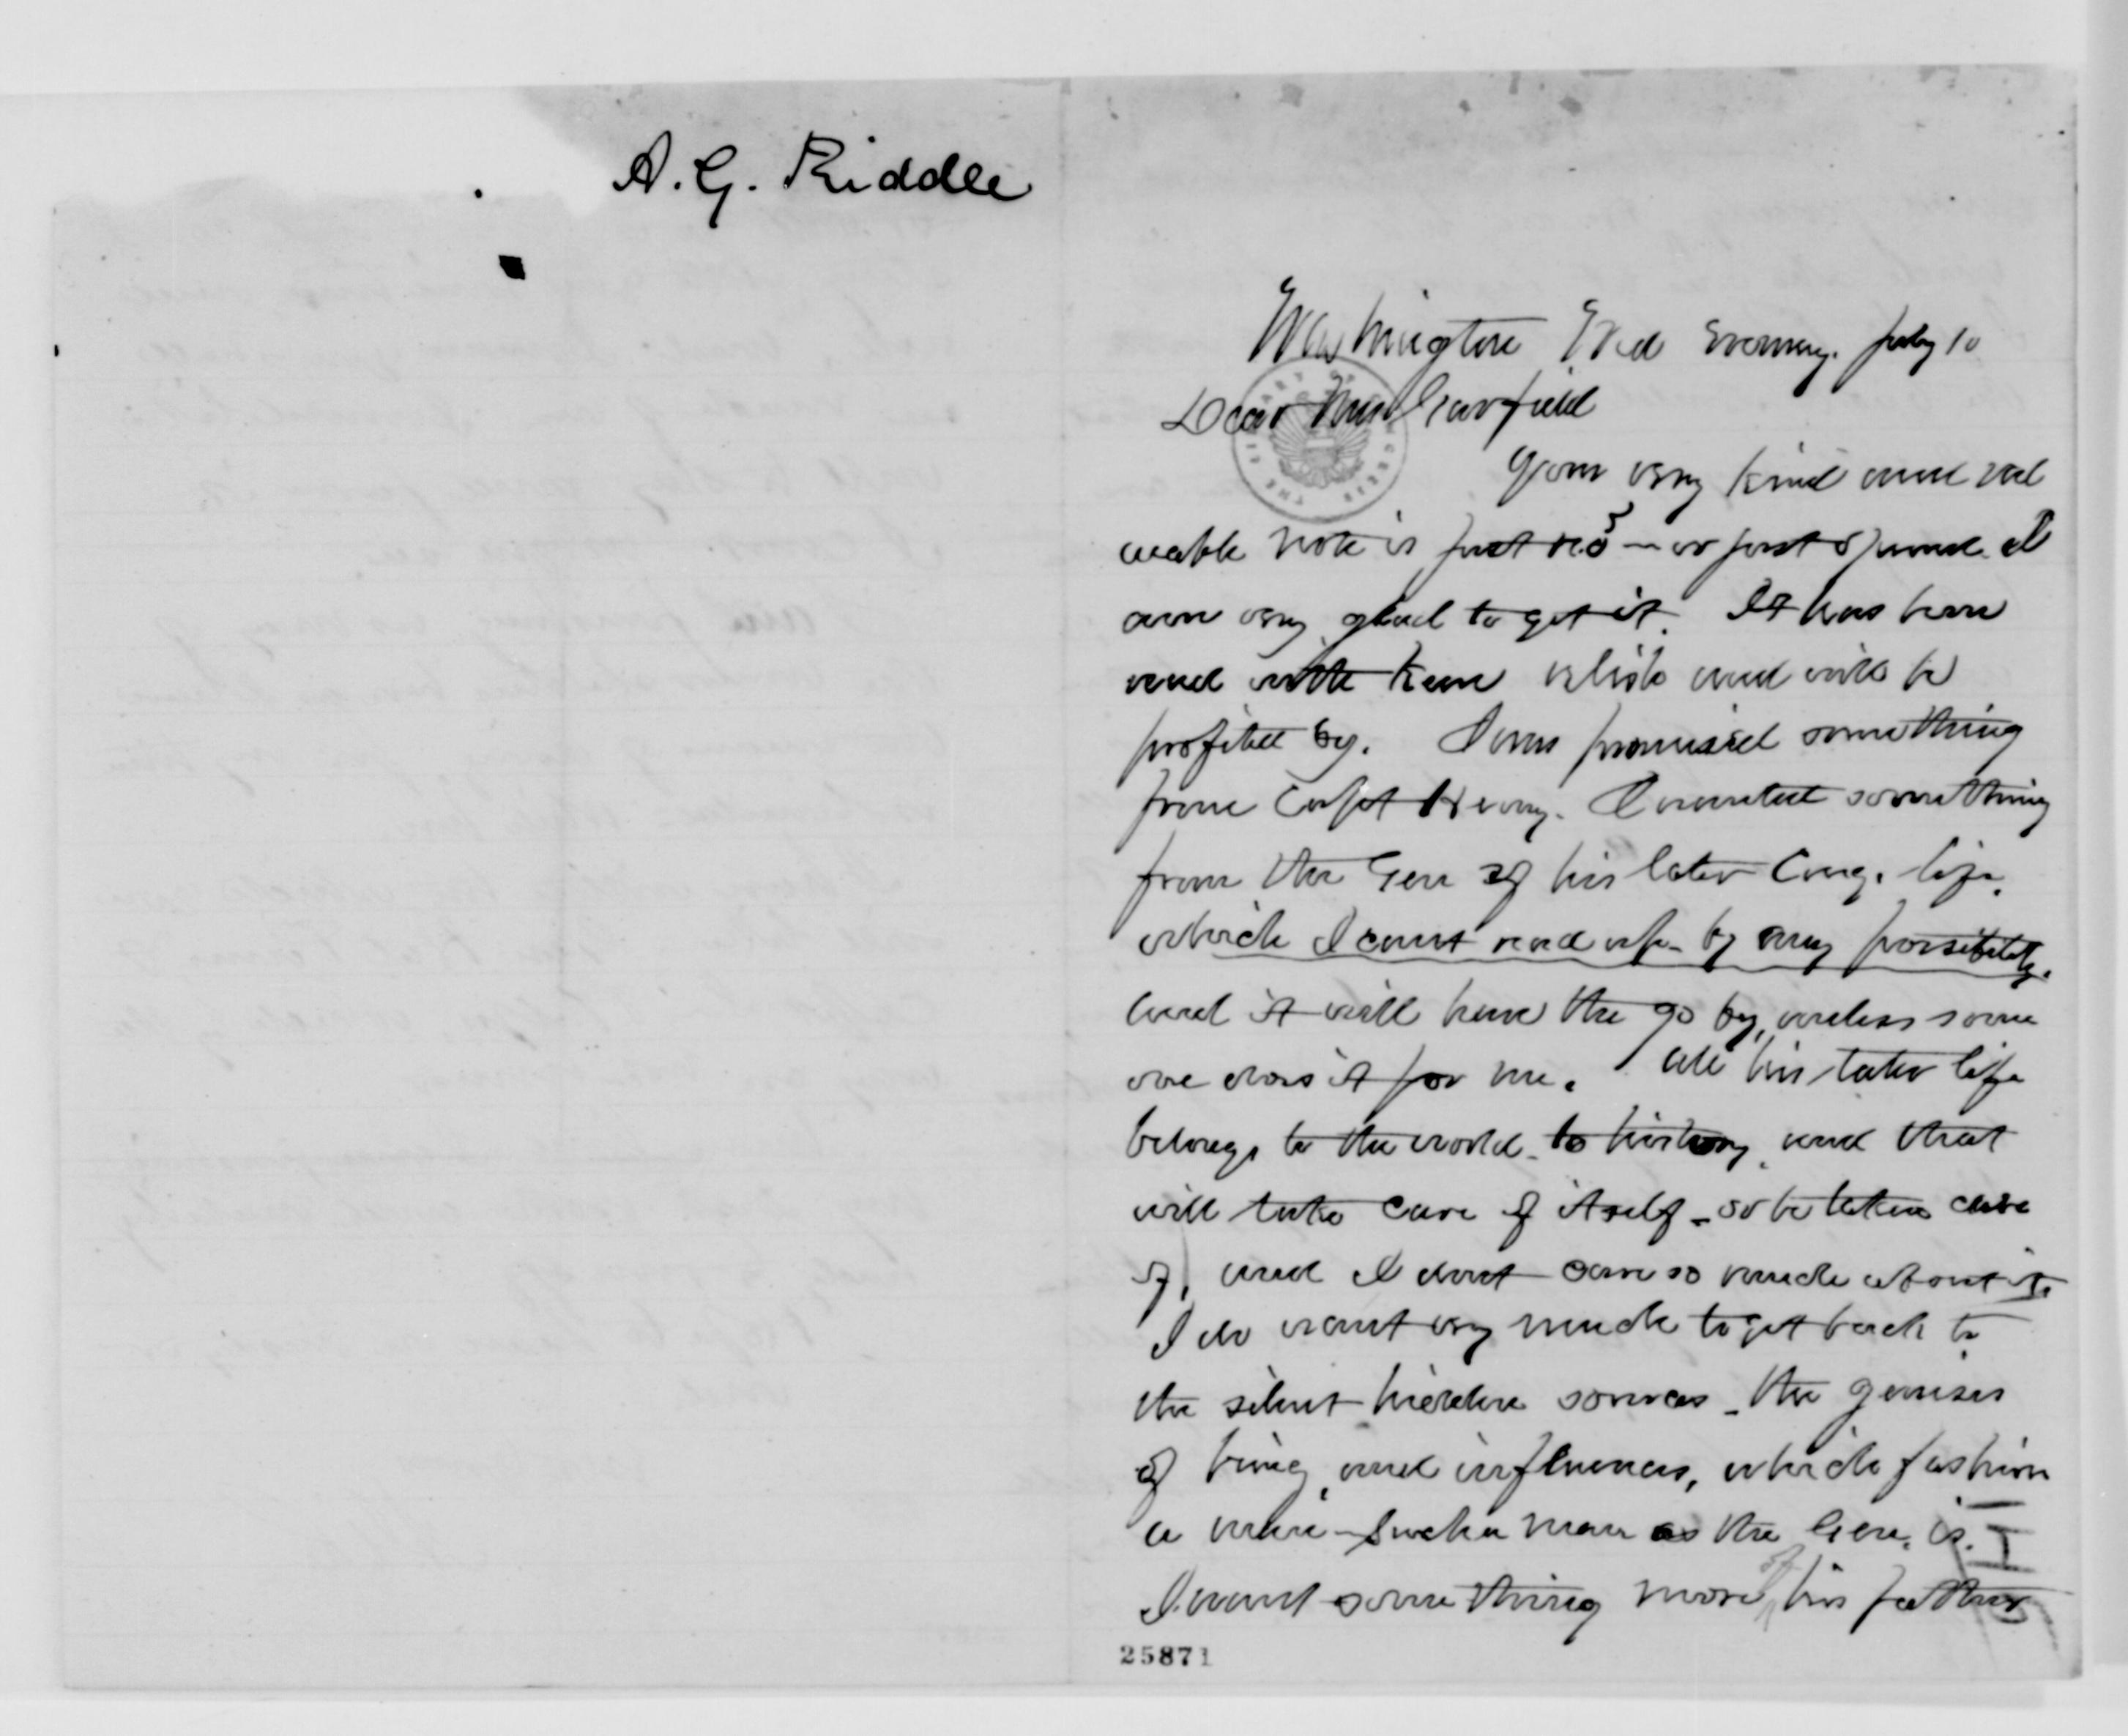 A. G. Riddle
Washington Wed Evening. July 10
Dear Mrs Garfield
Your very kind and val
uable note is just rec'd — or just opened. I
am very glad to get it. It has been
read with keen relish and will be
profited by. I am promised something
from Capt Henry. I wanted something
from the Gen of his later Cong. life.
which I cant read up by any possibility.
and it will have the go by, unless some
one does it for me. All his later life
belongs to the world to history, and that
will take care of itself — or be taken care
of, and I dont care so much about it.
I do want very much to get back to
the silent hidden sources — the genesis
of being, and influences, which fashion
a man — Such a man as the Gen. is.
I want something more of his father
25871